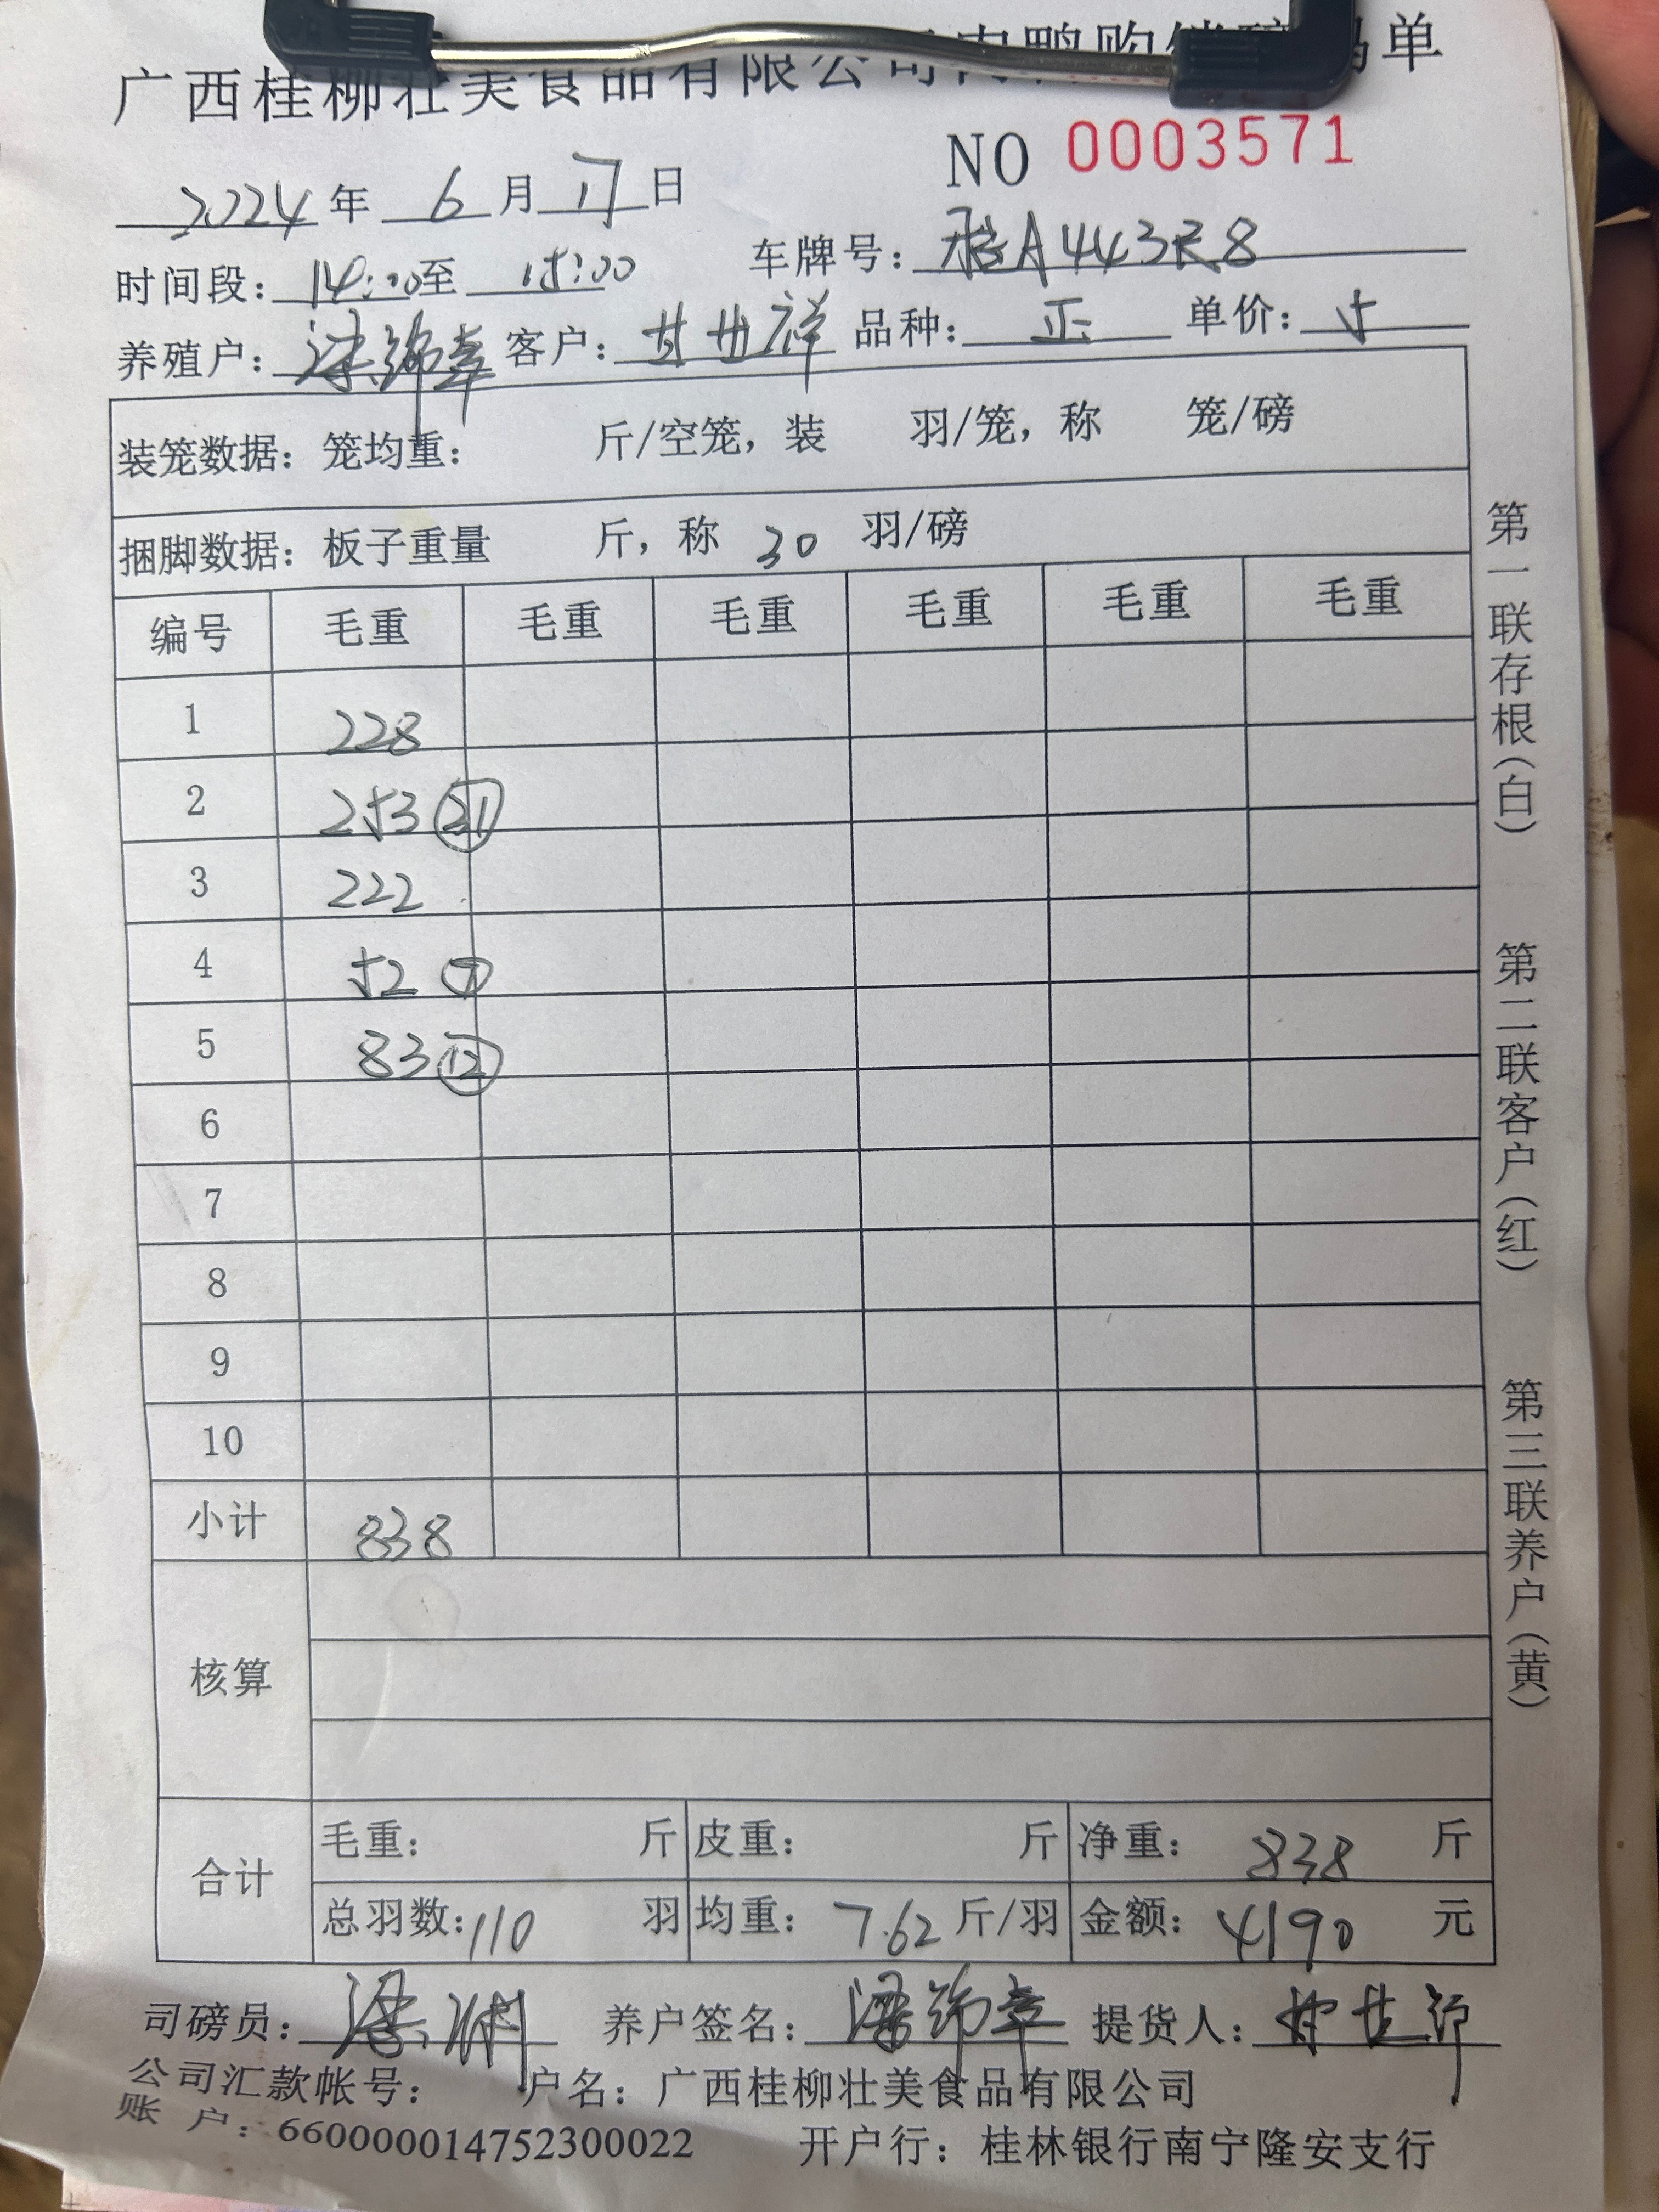 广西桂柳壮美食品有限公司
码单
NO 0003571
2024年 6月 17日
时间段: 14:00至 15:00 车牌号: 桂A443R8
养殖户: 梁锦章 客户: 甘世祥 品种: 正 单价: 5
装笼数据: 笼均重: 斤/空笼, 装 羽/笼, 称 笼/磅
捆脚数据: 板子重量 斤, 称 30 羽/磅
编号 毛重 毛重 毛重 毛重 毛重 毛重
1 228
2 253 31
3 222
4 52 7
5 83 12
6
7
8
9
10
小计 838
核算
合计 毛重: 斤 皮重: 斤 净重: 838 斤
总羽数: 110 羽 均重: 7.62 斤/羽 金额: 4190 元
司磅员: 梁 养户签名: 梁锦章 提货人: 甘世
公司汇款帐号: 户名: 广西桂柳壮美食品有限公司
账 户: 660000014752300022 开户行: 桂林银行南宁隆安支行
第一联存根(白) 第二联客户(红) 第三联养户(黄)